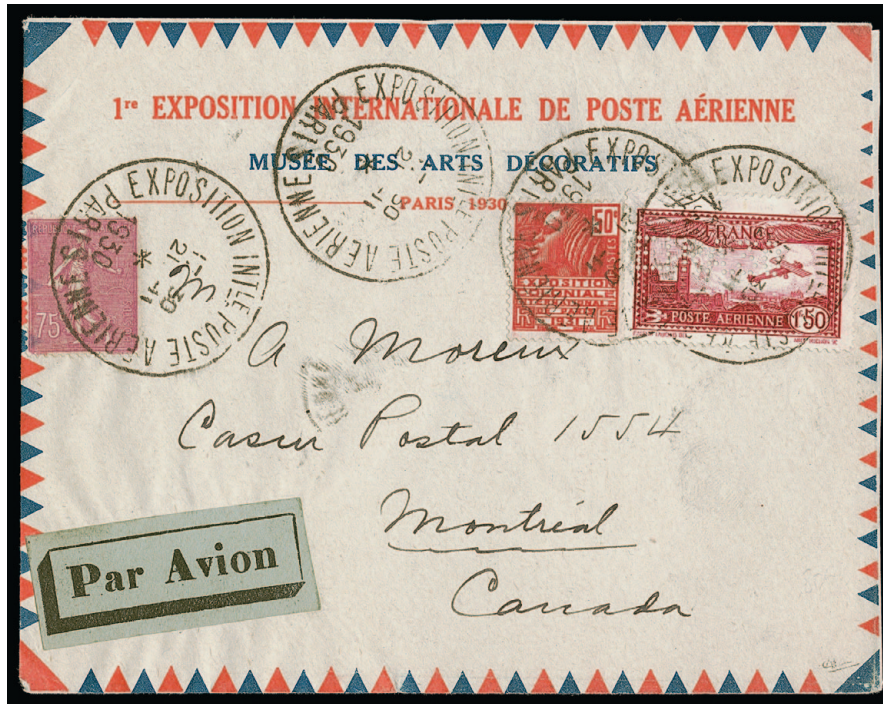 1re EXPOSITION INTERNATIONALE DE POSTE AÉRIENNE
MUSÉE DES ARTS DÉCORATIFS
PARIS 1930
EXPOSITION INTLE POSTE AERIENNE
PARIS 1930
EXPOSITION INTLE POSTE AERIENNE
PARIS 1930
21 - 11
30
EXPOSITION
EXPOSITION
75c
50c
POSTES
EXPOSITION
COLONIALE
INTERNATIONALE
PARIS 1931
FRANCE
POSTE AERIENNE 1f50
A Moreux
Casier Postal 1554
Montréal
Canada
Par Avion